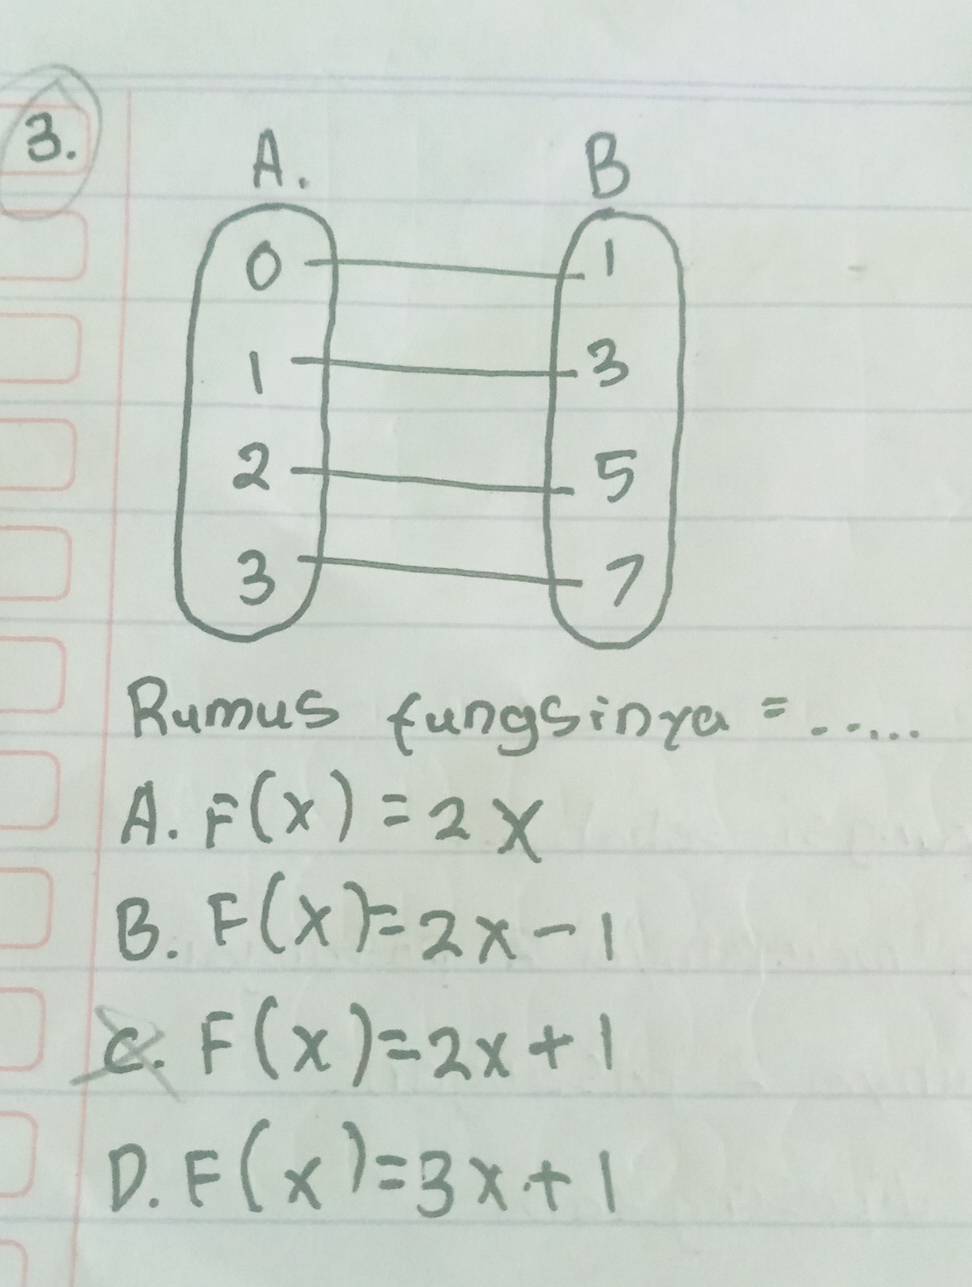 3.
A. B
0 1
1 3
2 5
3 7
Rumus fungsinya = .....
A. F(x) = 2x
B. F(x) = 2x - 1
C. F(x) = 2x + 1
D. F(x) = 3x + 1